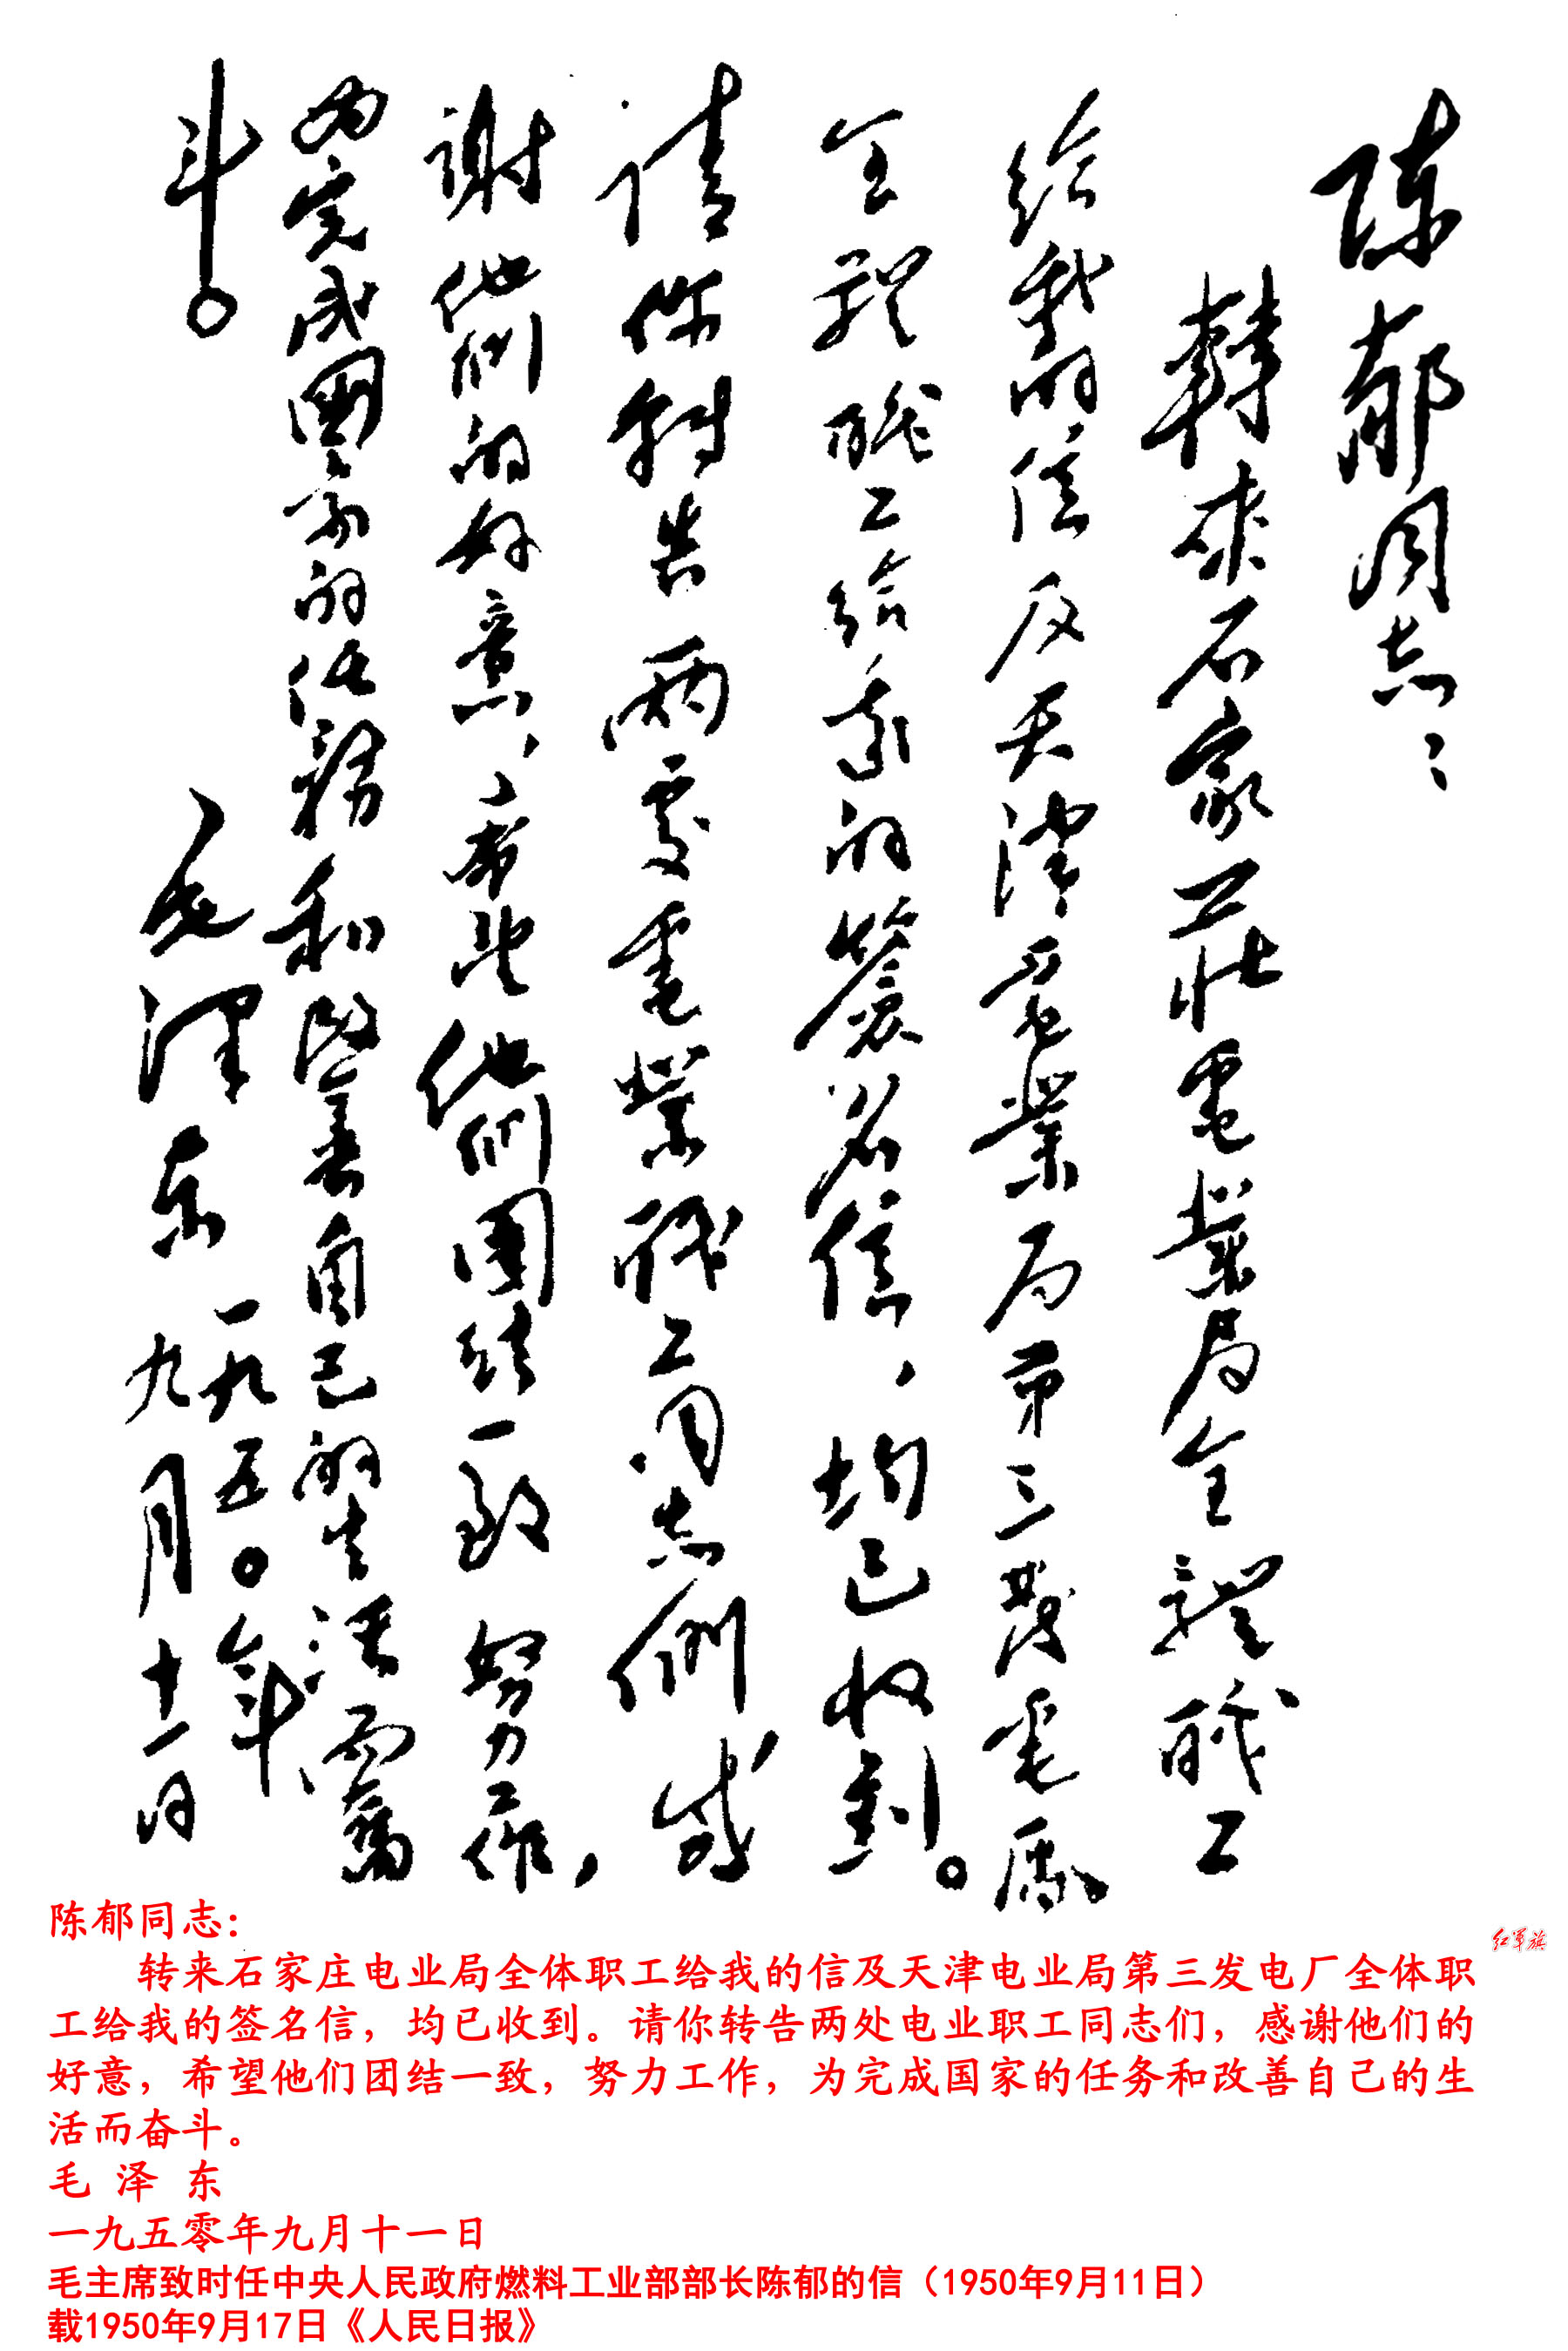 陈郁同志：
轉来石家莊電業局全體職工
给我的信及天津電業局第三發電厰
全體職工给我的簽名信，均已收到。
请你轉告两處電業職工同志們感
謝他們的好意，希望他們團结一致努力工作，
为完成國家的任務和改善自己的生活而奮
斗。
毛澤东
一九五〇年
九月十一日
陈郁同志：
转来石家庄电业局全体职工给我的信及天津电业局第三发电厂全体职
工给我的签名信，均已收到。请你转告两处电业职工同志们，感谢他们的
好意，希望他们团结一致，努力工作，为完成国家的任务和改善自己的生
活而奋斗。
毛 泽 东
一九五零年九月十一日
毛主席致时任中央人民政府燃料工业部部长陈郁的信（1950年9月11日）
载1950年9月17日《人民日报》
红军旗